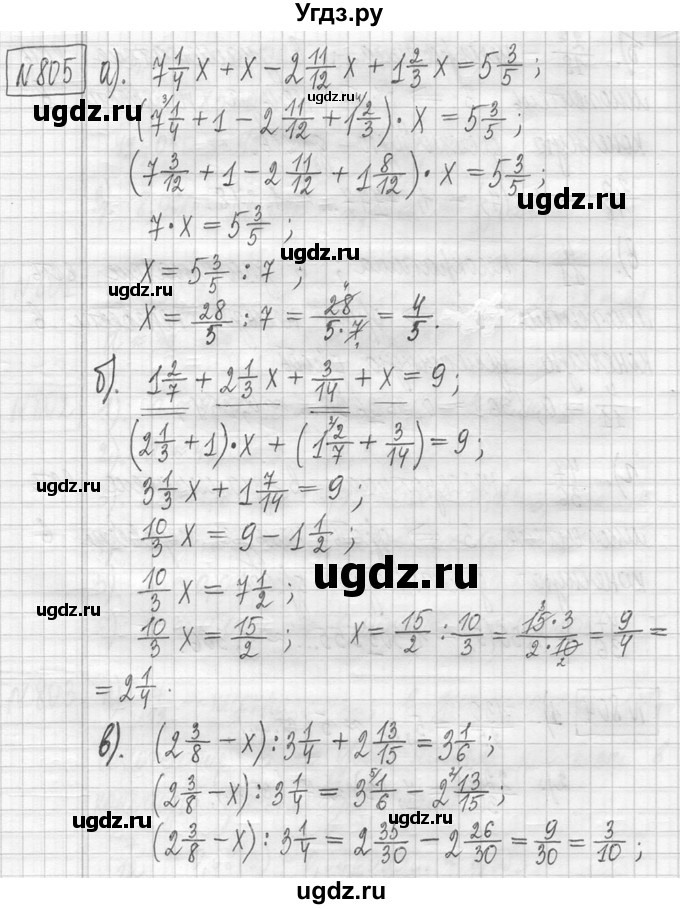 Угдз.ру
№805 а). 7 1/4 x + x − 2 11/12 x + 1 2/3 x = 5 3/5 ;
ugdz.ru
ugdz.ru
(7 1/4 + 1 − 2 11/12 + 1 2/3) · x = 5 3/5 ;
(7 3/12 + 1 − 2 11/12 + 1 8/12) · x = 5 3/5 ;
ugdz.ru
7 · x = 5 3/5 ;
ugdz.ru
x = 5 3/5 : 7 ;
ugdz.ru
x = 28/5 : 7 = 28/5·7 = 4/5 .
ugdz.ru
б). 1 2/7 + 2 1/3 x + 3/14 + x = 9 ;
(2 1/3 + 1) · x + (1 2/7 + 3/14) = 9 ;
ugdz.ru
ugdz.ru
3 1/3 x + 1 7/14 = 9 ;
10/3 x = 9 − 1 1/2 ;
ugdz.ru
10/3 x = 7 1/2 ;
ugdz.ru
10/3 x = 15/2 ; x = 15/2 : 10/3 = 15·3/2·10 = 9/4 =
= 2 1/4 .
ugdz.ru
в). (2 3/8 − x) : 3 1/4 + 2 13/15 = 3 1/6 ;
(2 3/8 − x) : 3 1/4 = 3 1/6 − 2 13/15 ;
ugdz.ru
ugdz.ru
(2 3/8 − x) : 3 1/4 = 2 35/30 − 2 26/30 = 9/30 = 3/10 ;
ugdz.ru
ugdz.ru